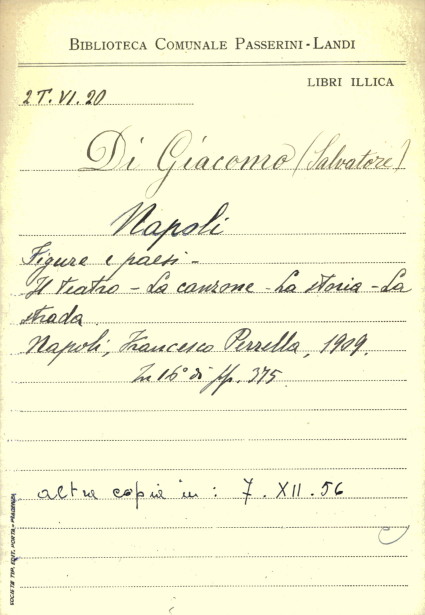 BIBLIOTECA COMUNALE PASSERINI-LANDI
LIBRI ILLICA
2T.VI.20
Di Giacomo (Salvatore)
Napoli
Figure e paesi -
Il teatro - La canzone - La storia - La
strada.
Napoli, Francesco Perrella, 1909.
In 16° di pp. 375
altra copia in: 7.XII.56
SOCIETÀ TIP. EDIT. PORTA - PIACENZA